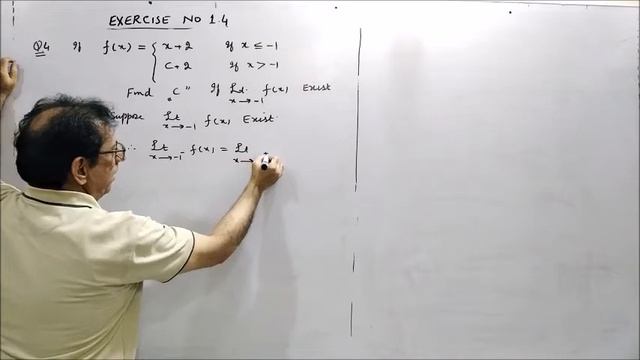 EXERCISE NO 1.4
Q4 If f(x) = { x+2 If x ≤ -1
C+2 If x > -1
Find "C" If Lt. f(x) Exist
x→-1
Suppose Lt f(x) Exist.
x→-1
∴ Lt f(x) = Lt
x→-1⁻ x→ +